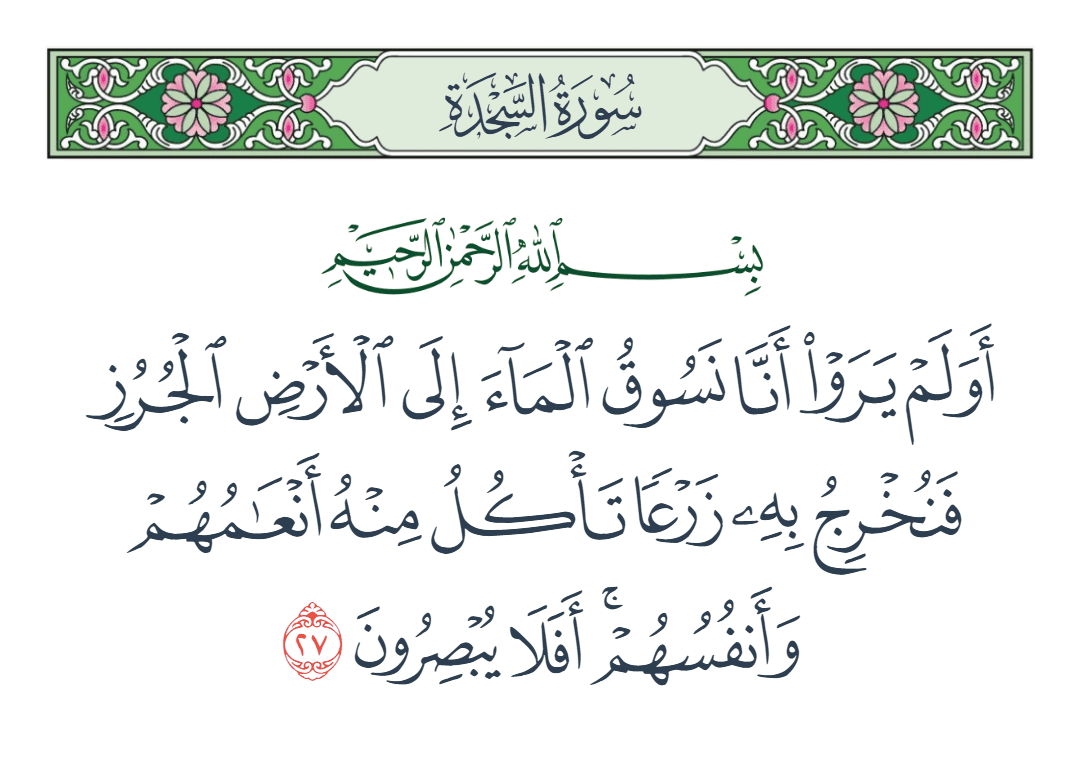 سُورَةُ السَّجْدَةِ
بِسْمِ ٱللَّهِ ٱلرَّحْمَٰنِ ٱلرَّحِيمِ
أَوَلَمْ يَرَوْا۟ أَنَّا نَسُوقُ ٱلْمَآءَ إِلَى ٱلْأَرْضِ ٱلْجُرُزِ
فَنُخْرِجُ بِهِۦ زَرْعًا تَأْكُلُ مِنْهُ أَنْعَٰمُهُمْ
وَأَنفُسُهُمْ ۚ أَفَلَا يُبْصِرُونَ ٢٧